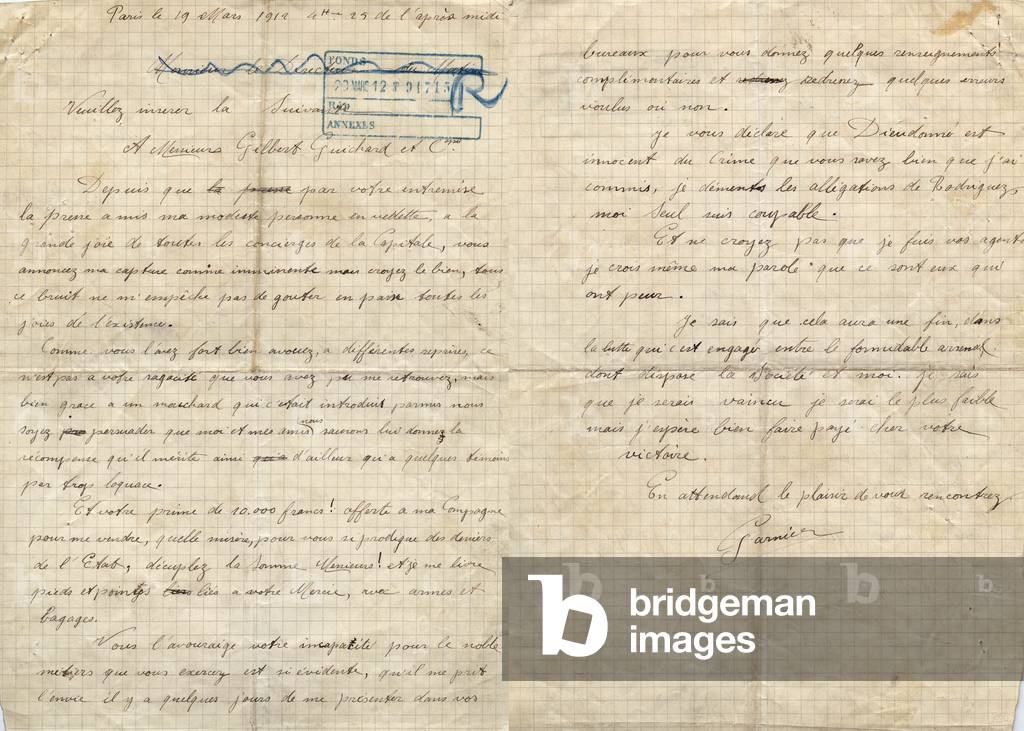 Paris le 19 Mars 1912 4H-25 de l'après midi
Monsieur le Directeur du Matin
FONDS
20 MARC 12 01715
R
ANNEXES
Veuillez inserer la Suivante
A Messieurs Gilbert, Guichard et Cie
Depuis que la presse par votre entremise
la presse a mis ma modeste personne en vedette, a la
grande joie de toutes les concierges de la Capitale, vous
annoncez ma capture comme imminente mais croyez le bien, tous
ce bruit ne m'empêche pas de gouter en paix toutes les
joies de l'existence.
Comme vous l'avez fort bien avouez, a différentes reprises, ce
n'est pas a votre sagacité que vous avez pu me retrouvez, mais
bien grace a un mouchard qui c'etait introduit parmis nous
soyez persuader que moi et mes amis nous saurons lui donnez la
récompense qu'il mérite ainsi d'ailleur qu'a quelques temoins
par trop loquace.
Et votre prime de 10.000 francs! offerte a ma Compagne
pour me vendre, quelle misère, pour vous si prodigue des deniers
de l'Etat, décuplez la somme Messieurs! et je me livre
pieds et points liés a votre Merci, avec armes et
bagages.
Vous l'avouraige votre incapatité pour le noble
metiers que vous exercez est si évidente, qu'il me prit
l'envie il y a quelques jours de me présenter dans vos
bureaux pour vous donnez quelques renseignements
complimentaires et redressez quelques erreurs
voulus ou non.
je vous déclare que Dieudonné est
innocent du Crime que vous savez bien que j'ai
commis, je démens les alligations de Rodriguez,
moi Seul suis coupable.
Et ne croyez pas que je fuis vos agents
je crois même ma parole que ce sont eux qui
ont peur.
Je sais que cela aura une fin, dans
la lutte qui c'est engagé entre le formidable arsenal
dont dispose la Société et moi. Je sais
que je serais vaincu je serai le plus faible
mais j'espere bien faire payé cher votre
victoire.
En attendand le plaisir de vous rencontrez
Garnier
b bridgeman
images